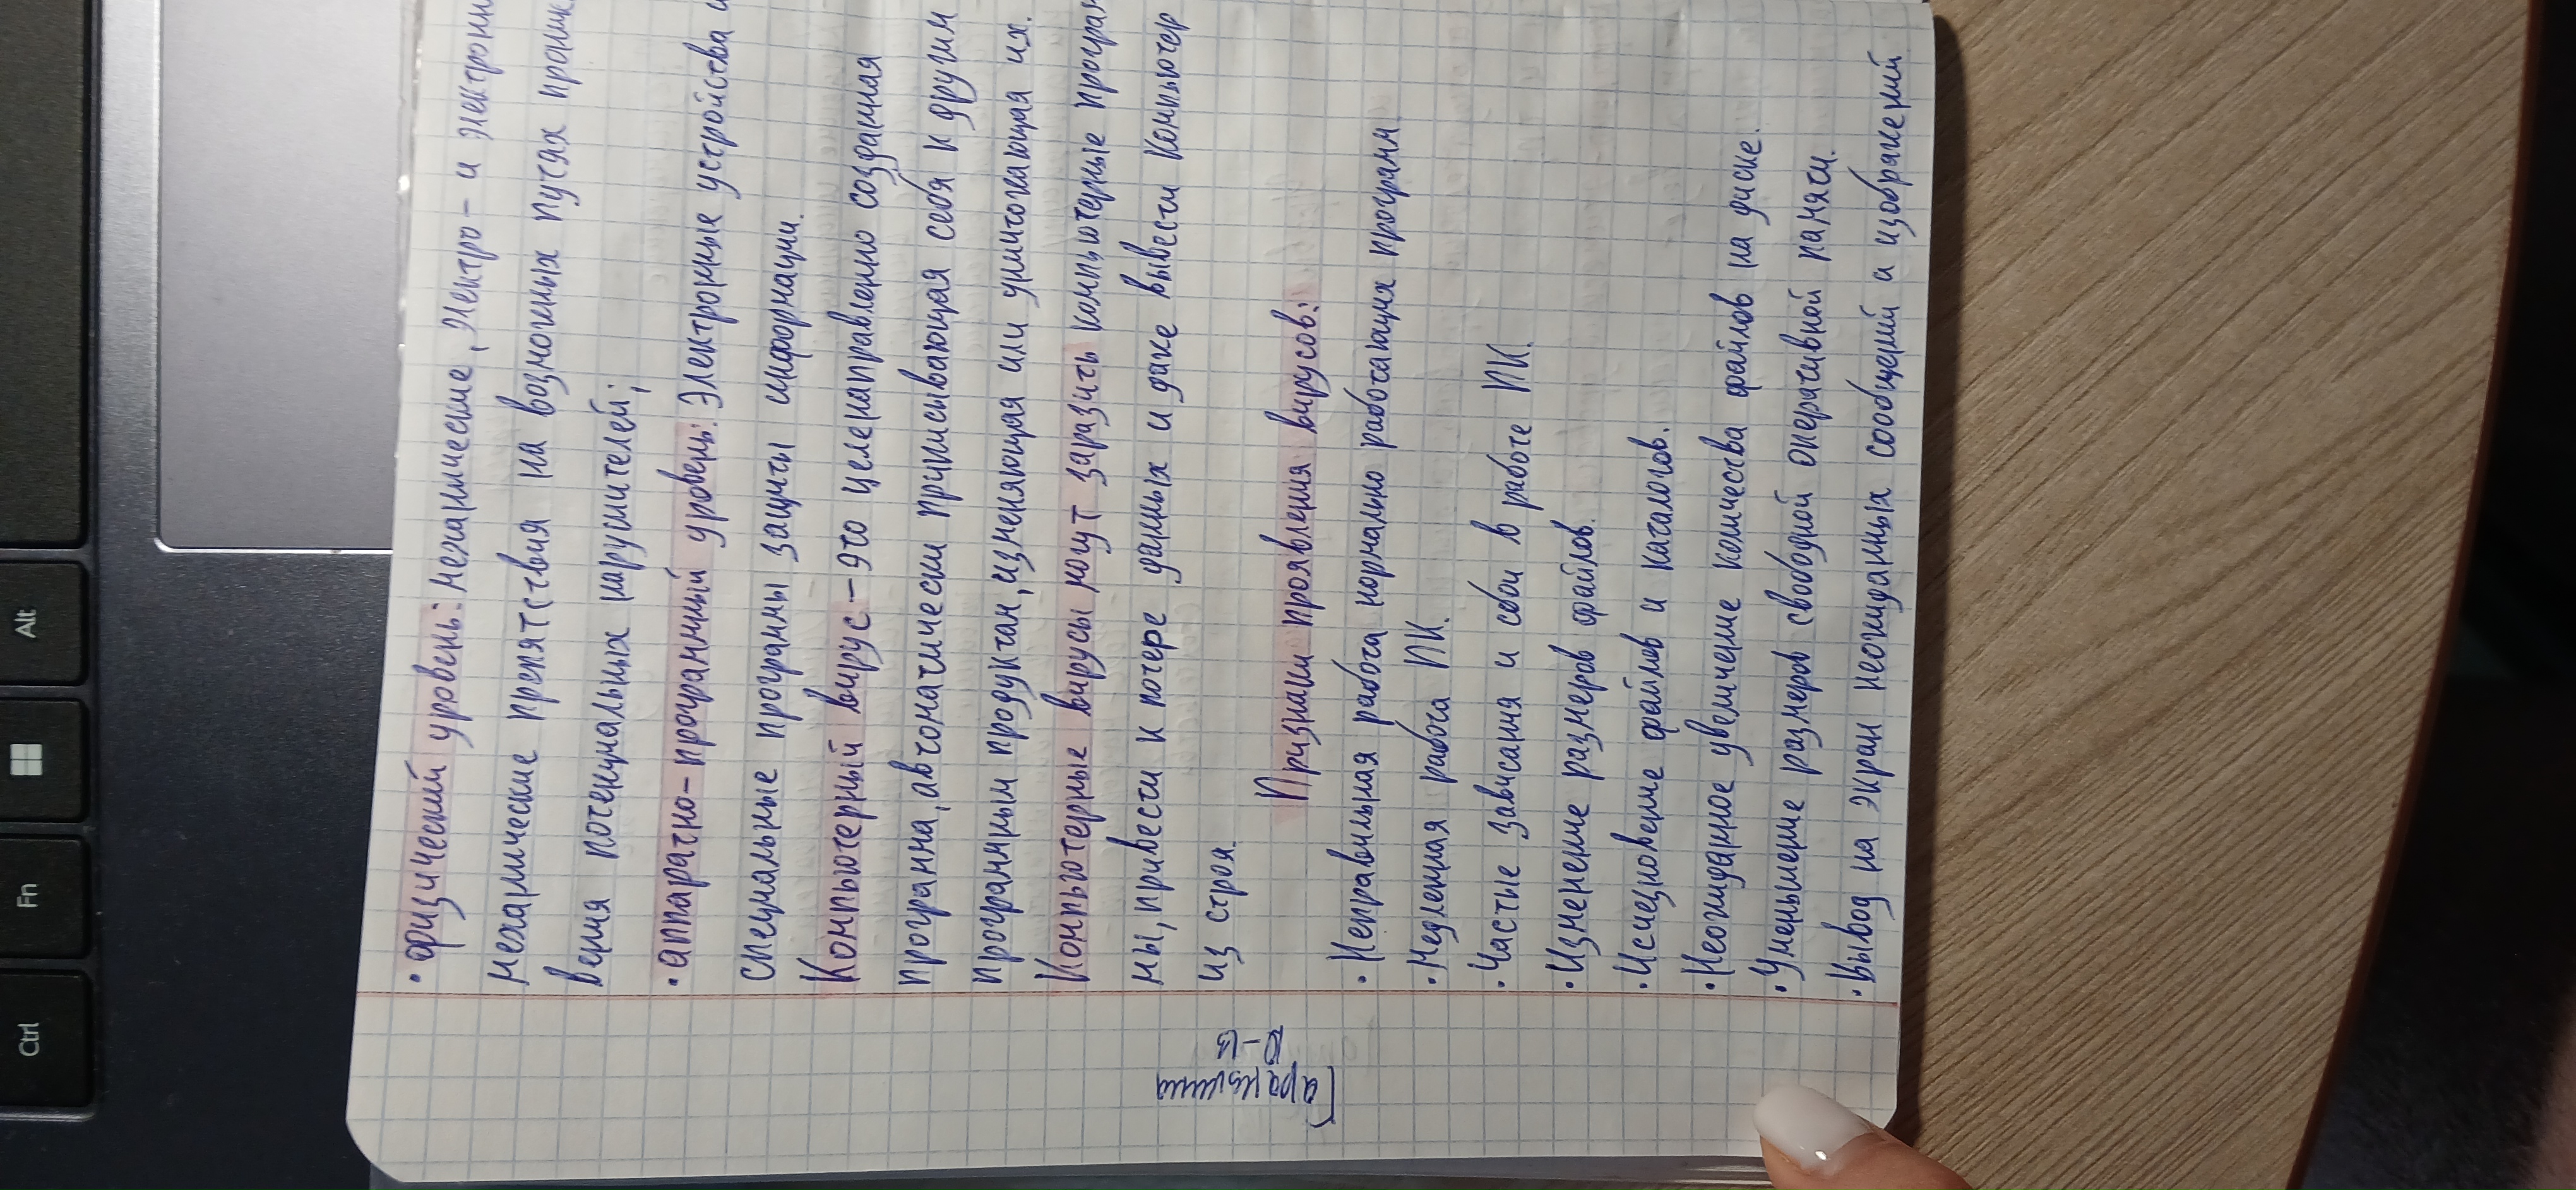 • физический уровень: механические, электро- и электронно
механические препятствия на возможных путях проник
вения потенциальных нарушителей;
• аппаратно-програмный уровень: электронные устройства и
специальные програмы защиты информации.
Компьютерный вирус - это целенаправленно созданная
программа, автоматически приписывающая себя к другим
програмным продуктам, изменяющая или уничтожающая их.
Компьютерные вирусы могут заразить компьютерные програм
мы, привести к потере данных и даже вывести компьютер
из строя.
Признаки проявления вирусов:
• Неправильная работа нормально работающих программ
• Медленная работа ПК.
• Частые зависания и сбои в работе ПК.
• Изменение размеров файлов.
• Исчезновение файлов и каталогов.
• Неожиданное увеличение количества файлов на диске.
• Уменьшение размеров свободной оперативной памяти.
• Вывод на экран неожиданных сообщений и изображений
Ctrl
Fn
Alt